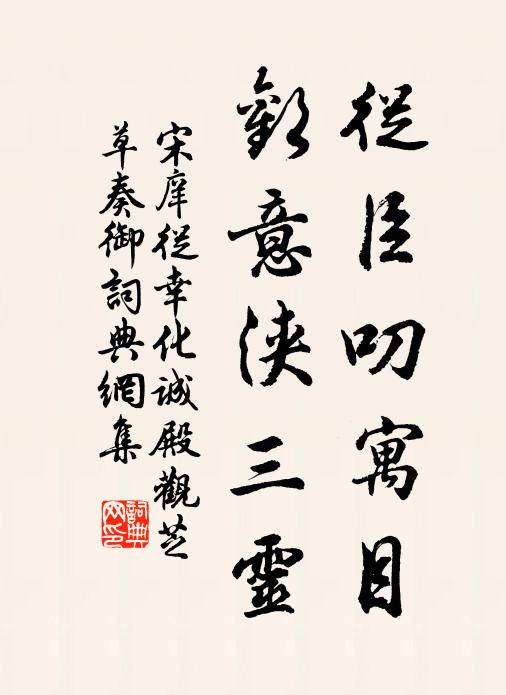 從臣叨寓目
歡意浹三靈
宋庠從幸化誠殿觀芝
草奏御詞典網集
詞典
网印